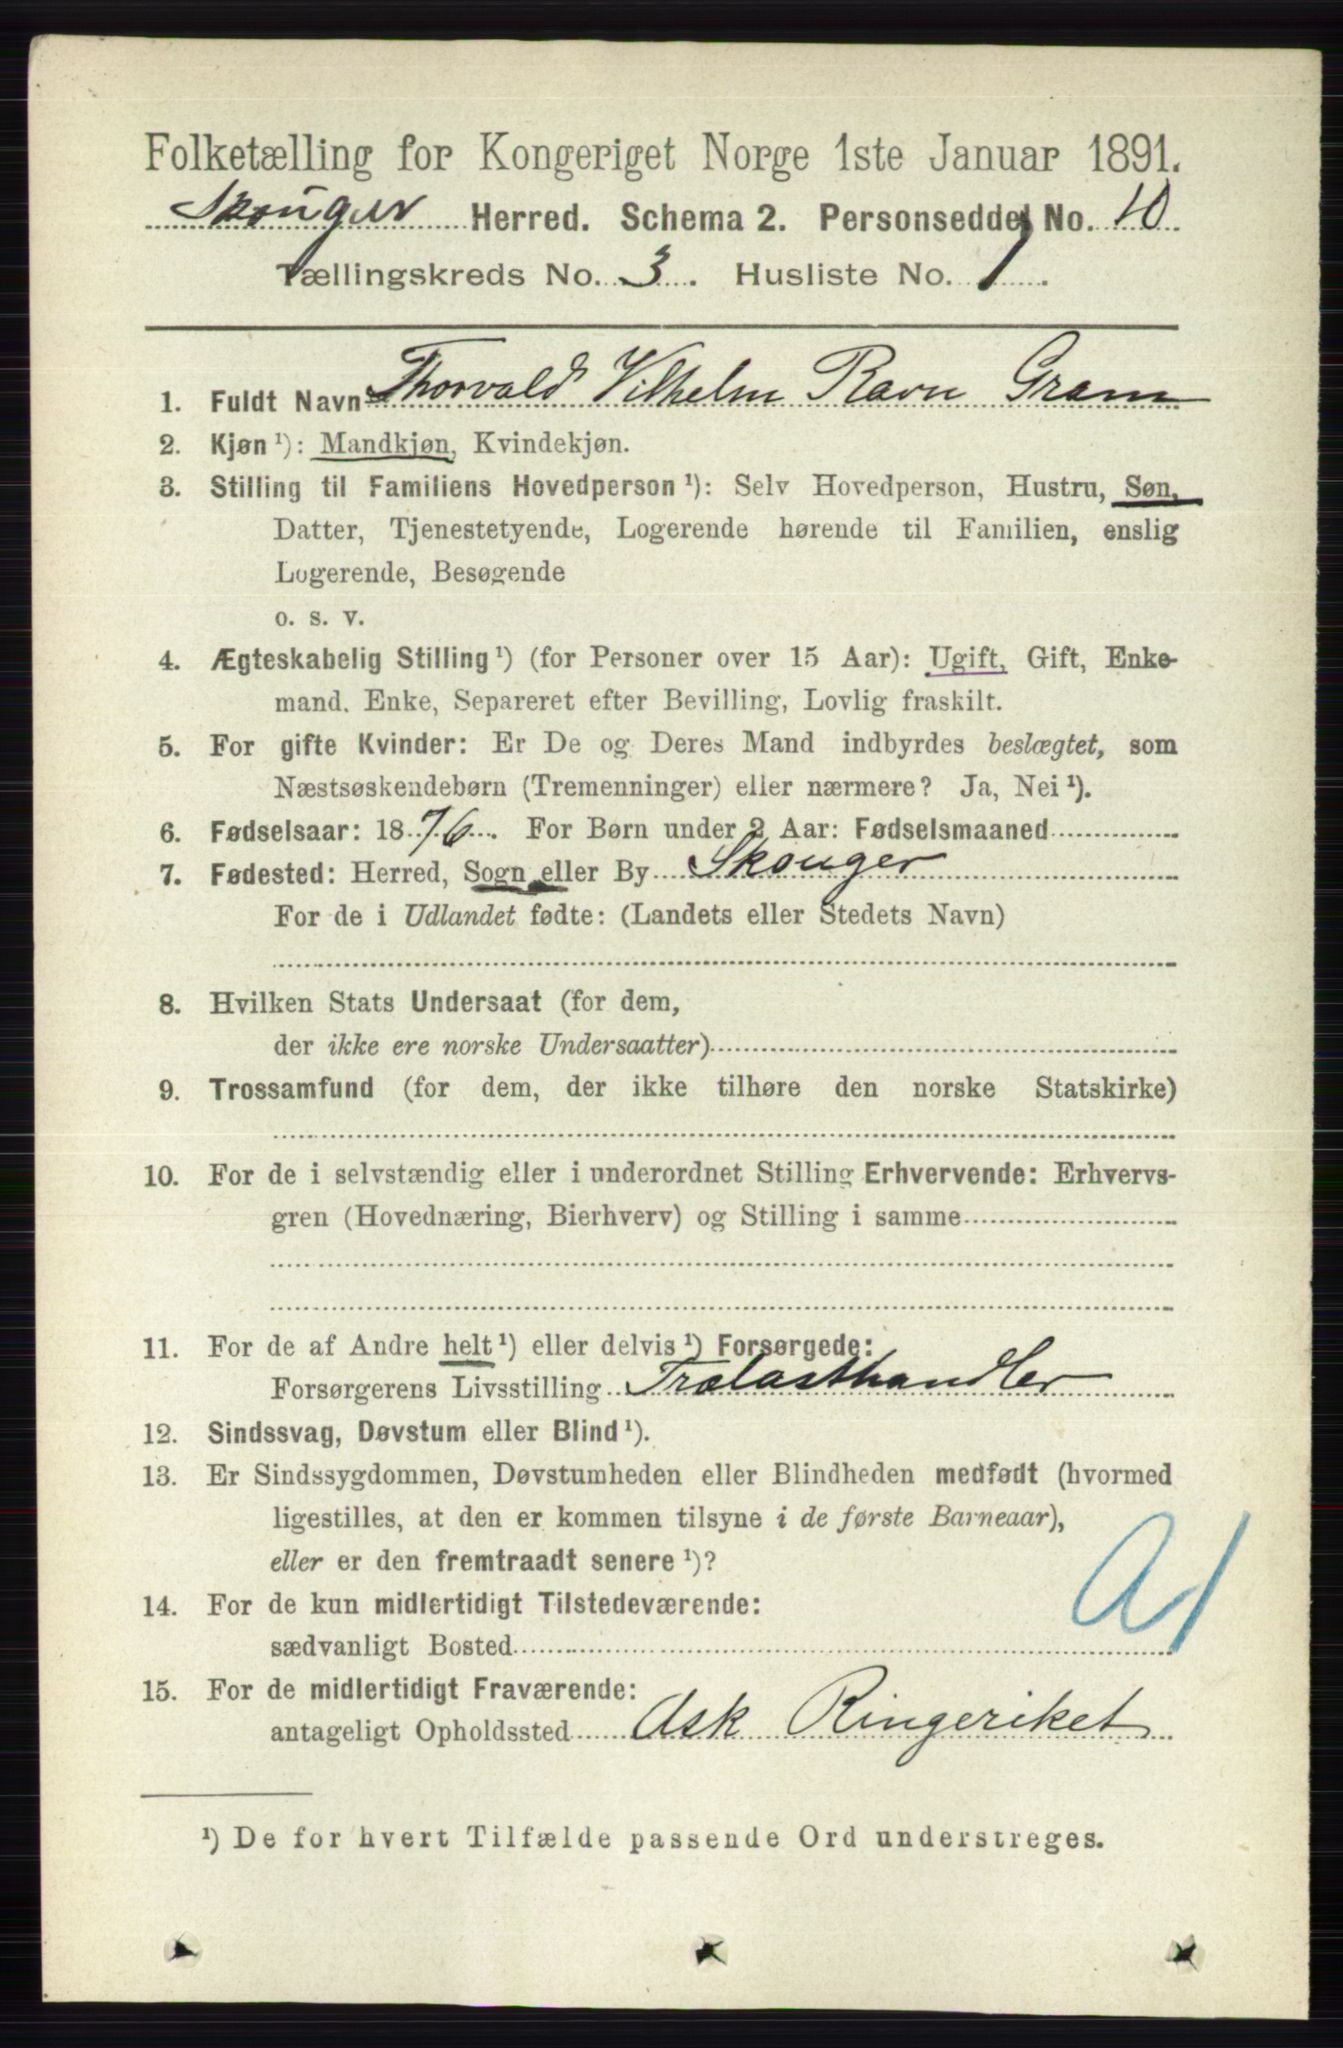 Folketælling for Kongeriget Norge 1ste Januar 1891.
Skouger Herred. Schema 2. Personseddel No. 10
Tællingskreds No. 3. Husliste No. 1.
1. Fuldt Navn Thorvald Vilhelm Ravn Gram
2. Kjøn ¹): Mandkjøn, Kvindekjøn.
3. Stilling til Familiens Hovedperson ¹): Selv Hovedperson, Hustru, Søn,
Datter, Tjenestetyende, Logerende hørende til Familien, enslig
Logerende, Besøgende
o. s. v.
4. Ægteskabelig Stilling ¹) (for Personer over 15 Aar): Ugift, Gift, Enke-
mand, Enke, Separeret efter Bevilling, Lovlig fraskilt.
5. For gifte Kvinder: Er De og Deres Mand indbyrdes beslægtet, som
Næstsøskendebørn (Tremenninger) eller nærmere? Ja, Nei ¹).
6. Fødselsaar: 1876. For Børn under 2 Aar: Fødselsmaaned
7. Fødested: Herred, Sogn eller By Skouger
For de i Udlandet fødte: (Landets eller Stedets Navn)
8. Hvilken Stats Undersaat (for dem,
der ikke ere norske Undersaatter)
9. Trossamfund (for dem, der ikke tilhøre den norske Statskirke)
10. For de i selvstændig eller i underordnet Stilling Erhvervende: Erhvervs-
gren (Hovednæring, Bierhverv) og Stilling i samme
11. For de af Andre helt ¹) eller delvis ¹) Forsørgede:
Forsørgerens Livsstilling Trælasthandler
12. Sindssvag, Døvstum eller Blind ¹).
13. Er Sindssygdommen, Døvstumheden eller Blindheden medfødt (hvormed
ligestilles, at den er kommen tilsyne i de første Barneaar),
eller er den fremtraadt senere ¹)?
14. For de kun midlertidigt Tilstedeværende:
sædvanligt Bosted
A1
15. For de midlertidigt Fraværende:
antageligt Opholdssted Ask Ringeriket
¹) De for hvert Tilfælde passende Ord understreges.